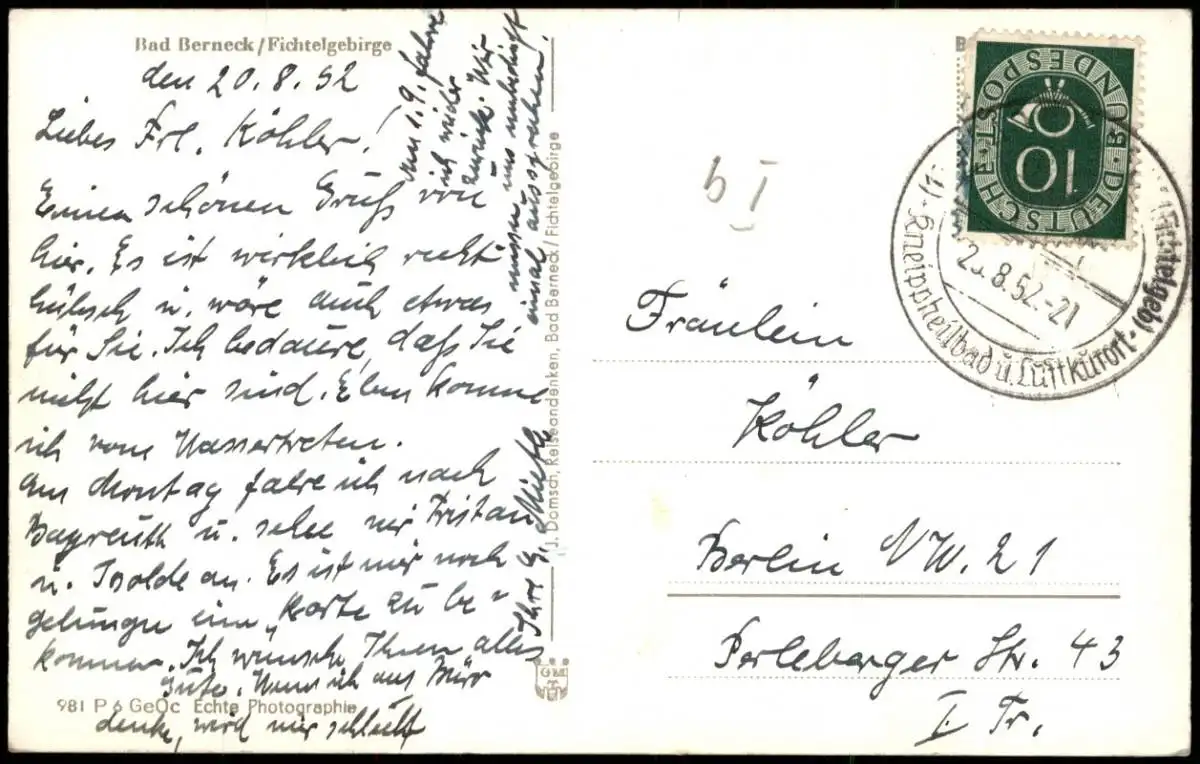 Bad Berneck/Fichtelgebirge
den 20.8.52
Liebes Frl. Köhler!
Einen schönen Gruß von
hier. Es ist wirklich recht
hübsch u. wäre auch etwas
für Sie. Ich bedaure, daß Sie
nicht hier sind. Eben komme
ich vom Wassertreten.
Am Montag fahre ich nach
Bayreuth u. sehe mir Tristan
u. Isolde an. Es ist mir noch
gelungen eine Karte zu be-
kommen. Ich wünsche Ihnen alles
Gute. Wenn ich ans Büro
denke, wird mir schlecht
Ihre G.
Am 1.9. fahre
ich wieder
zurück. Wir
müssen uns unbedingt
einmal aussprechen!
981 P 6 GeOc Echte Photographie
J. Domsch, Reiseandenken, Bad Berneck/Fichtelgebirge
b I
DEUTSCHE BUNDESPOST
10
8.52-21
(Fichtelgeb)
Kneippheilbad u. Luftkurort
Fräulein
Köhler
Berlin NW. 21
Perleberger Str. 43
I. Tr.